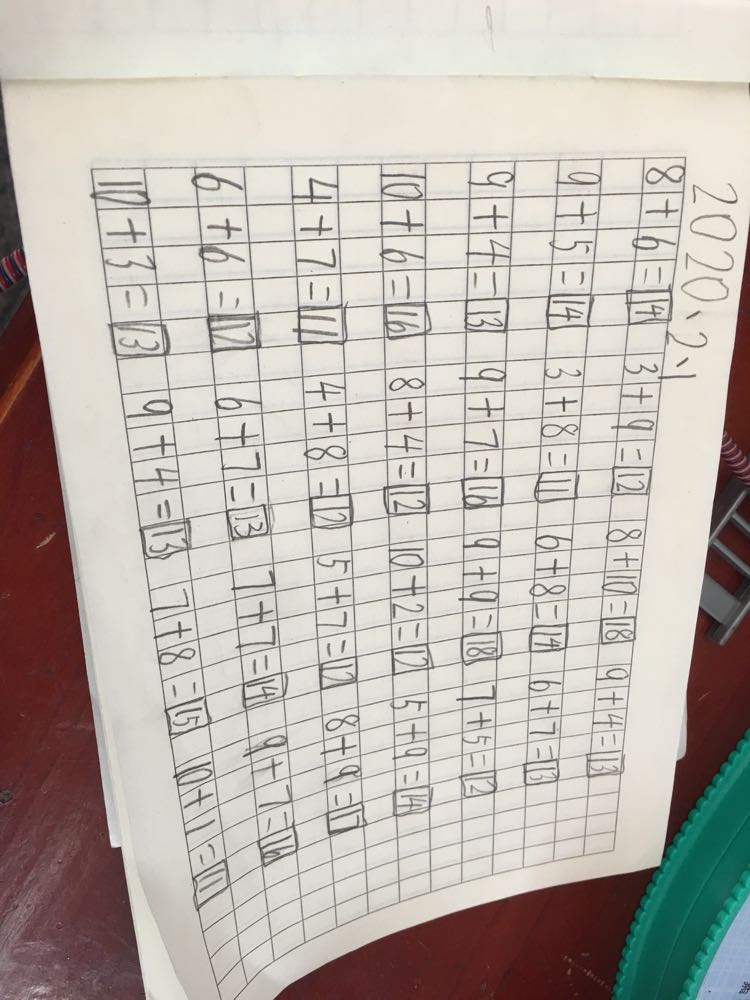 2020、2、1
8+6=14 3+9=12 8+10=18 9+4=13
9+5=14 3+8=11 6+8=14 6+7=13
9+4=13 9+7=16 9+9=18 7+5=12
10+6=16 8+4=12 10+2=12 5+9=14
4+7=11 4+8=12 5+7=12 8+9=17
6+6=12 6+7=13 7+7=14 9+7=16
10+3=13 9+4=13 7+8=15 10+1=11